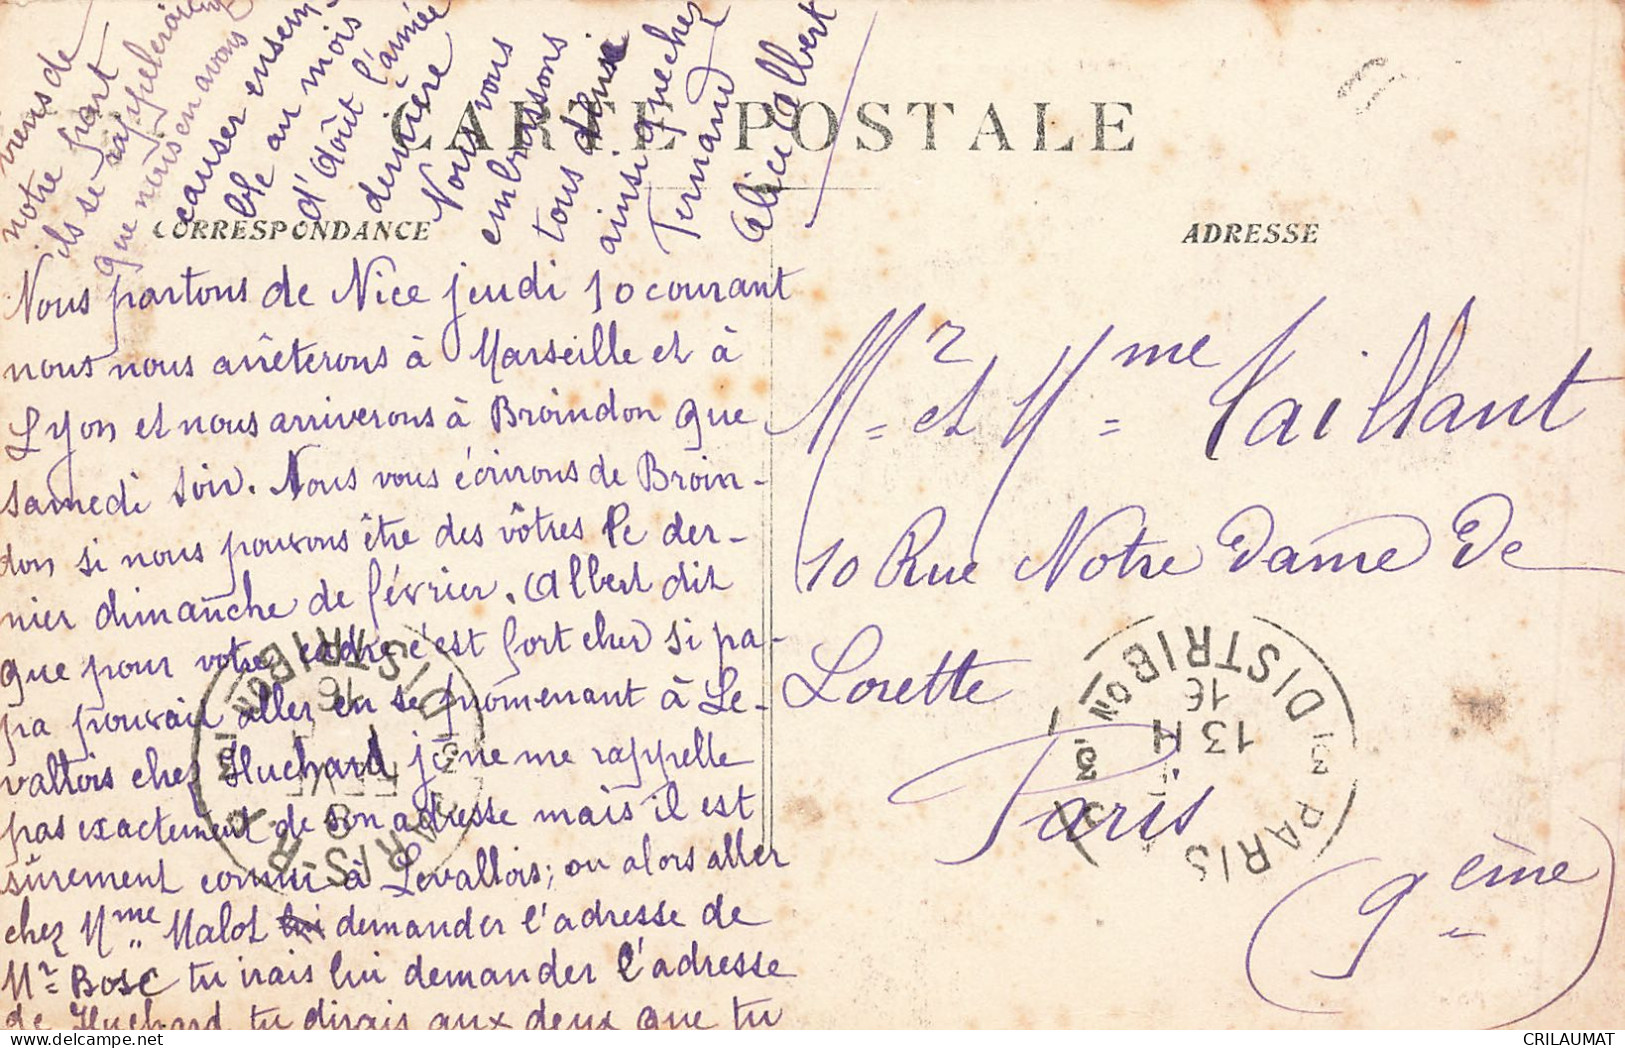 CARTE POSTALE
CORRESPONDANCE
ADRESSE
Nous partons de Nice jeudi 10 courant
nous nous arrêterons à Marseille et à
Lyon et nous arriverons à Broindon que
samedi soir. Nous vous écrirons de Broin-
don si nous pouvons être des vôtres le der-
nier dimanche de février. Albert dit
que pour votre cadre c'est fort cher si pa-
pa pouvait aller en se promenant à Le-
vallois chez Huchard je ne me rappelle
pas exactement de son adresse mais il est
sûrement connu à Levallois; ou alors aller
chez Mme Malot lui demander l'adresse de
Mr Bosc tu irais lui demander l'adresse
de Huchard tu dirais aux deux que tu
viens de
notre part
ils se rappelleraient
que nous en avons
causer ensem-
ble au mois
d'août l'année
dernière
Nous vous
embrassons
tous deux
ainsi que chez
Fernand
Alice Albert
Mr et Mme Vaillant
10 Rue Notre Dame De
Lorette
Paris
(9ème)
PARIS DISTRIBON
13 H
16
PARIS DISTRIBON
16
8
FEVR
CRILAUMAT